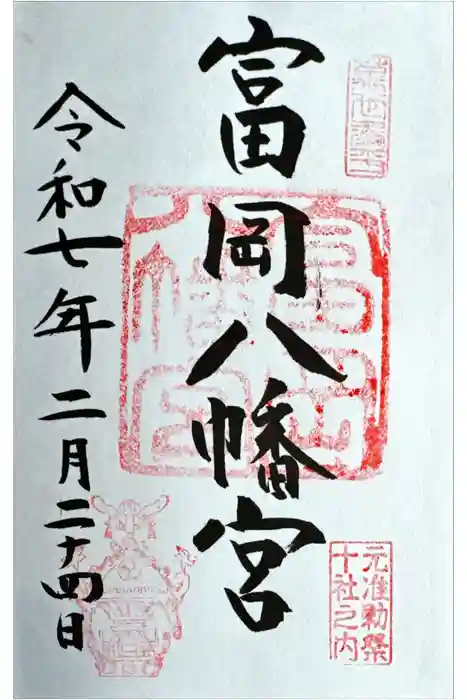 富岡八幡宮
元准勅祭
十社之内
令和七年二月二十四日